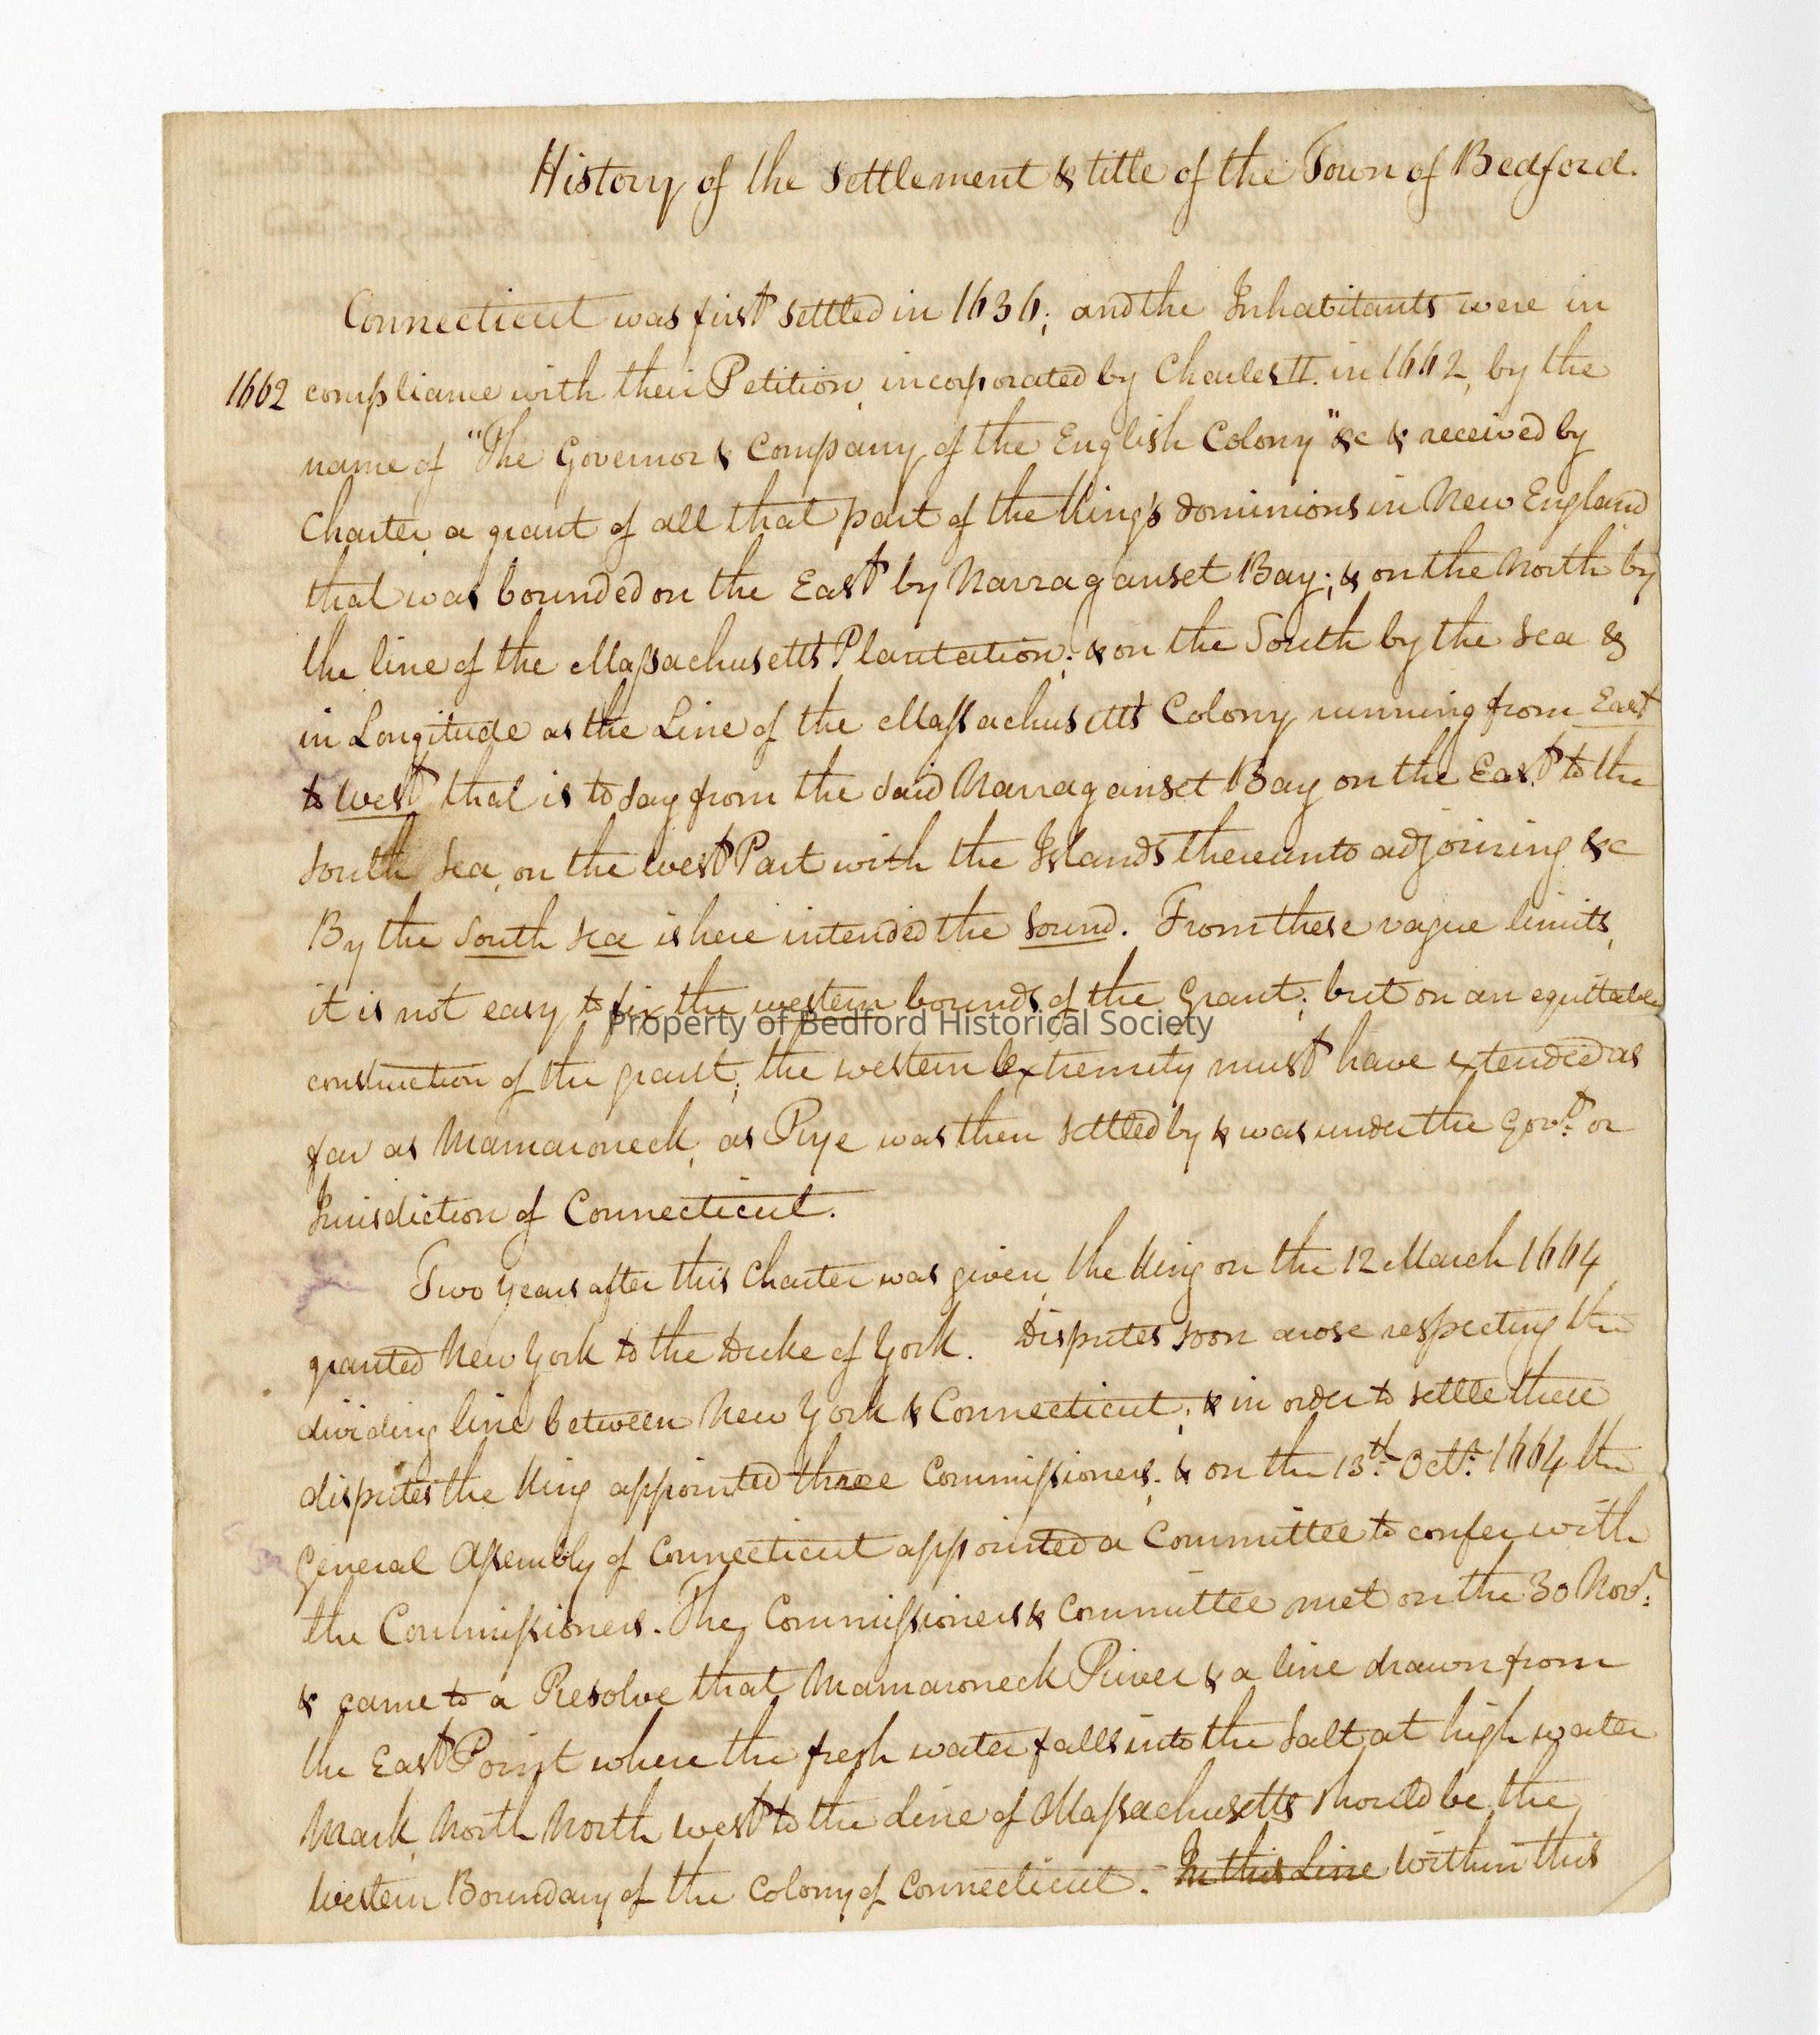 History of the settlement & title of the Town of Bedford.
Connecticut was first settled in 1636; and the Inhabitants were in
1662 compliance with their Petition, incorporated by Charles II. in 1662, by the
name of "The Governor & Company of the English Colony" &c & received by
Charter, a grant of all that part of the King's dominions in New England
that was bounded on the East by Narraganset Bay; & on the North by
the line of the Massachusetts Plantation; & on the South by the Sea &
in Longitude as the Line of the Massachusetts Colony running from East
to West, that is to say from the said Narraganset Bay on the East to the
South Sea, on the West Part with the Islands thereunto adjoining &c
By the South Sea is here intended the Sound. From these vague limits,
it is not easy to fix the western bounds of the Grant; but on an equitable
Property of Bedford Historical Society
construction of the grant; the western Extremity must have extended as
far as Mamaroneck, as Rye was then settled by & was under the Govt. or
Jurisdiction of Connecticut.
Two years after this Charter was given, the King on the 12 March 1664,
granted New York to the Duke of York. Disputes soon arose respecting the
dividing line between New York & Connecticut; & in order to settle these
disputes the King appointed three Commissioners; & on the 13th. Octr. 1664 the
General Assembly of Connecticut appointed a Committee to confer with
the Commissioners. The Commissioners & Committee met on the 30 Novr.
& came to a Resolve that Mamaroneck River & a line drawn from
the East Point where the fresh water falls into the Salt at high water
Mark, North North west to the Line of Massachusetts should be the
Western Boundary of the Colony of Connecticut. In this Line Within this